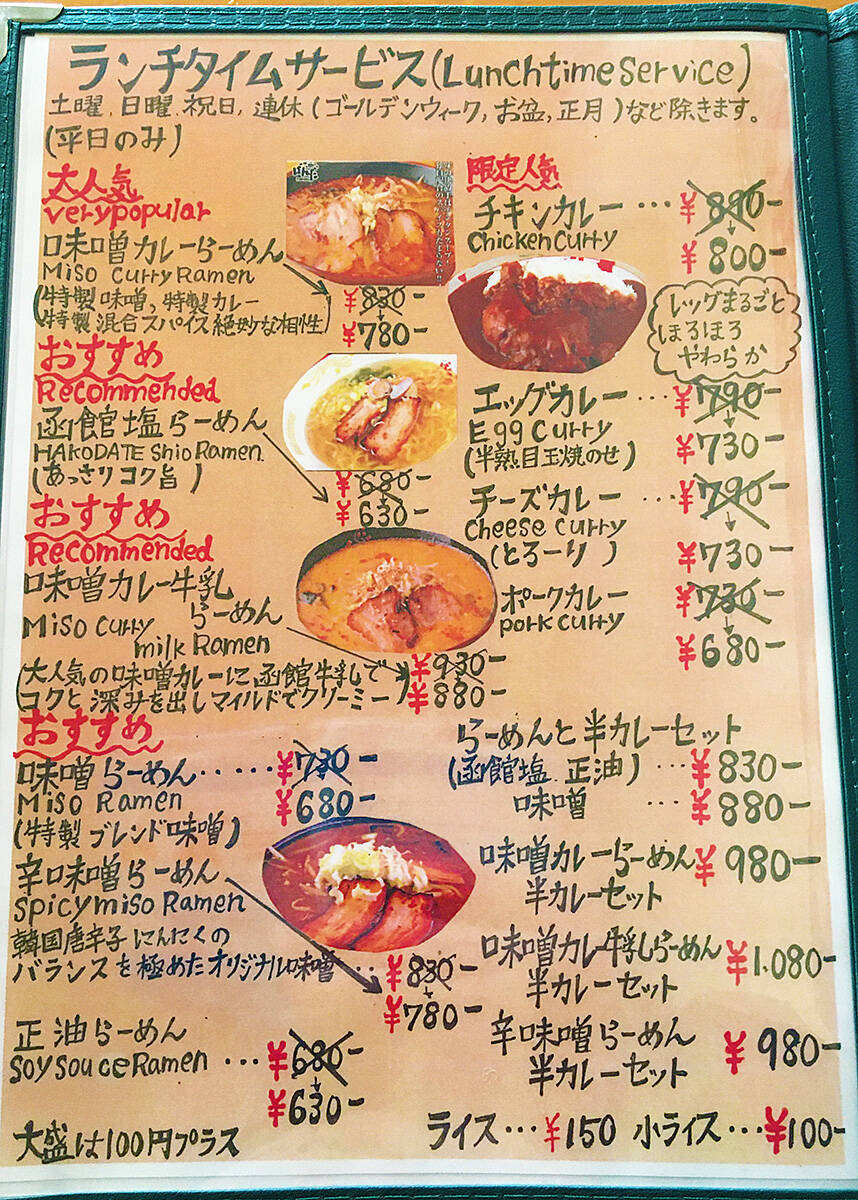 ランチタイムサービス(Lunchtime service)
土曜、日曜、祝日、連休(ゴールデンウィーク,お盆,正月)など除きます。
(平日のみ)
大人気
very popular
味噌カレーらーめん
Miso Curry Ramen
(特製味噌、特製カレー
特製混合スパイス絶妙な相性)
¥830-
¥780-
おすすめ
Recommended
函館塩らーめん
HAKODATE Shio Ramen
(あっさりコク旨)
¥680-
¥630-
おすすめ
Recommended
味噌カレー牛乳
らーめん
Miso Curry
milk Ramen
(大人気の味噌カレーに函館牛乳で
コクと深みを出しマイルドでクリーミー)
¥930-
¥880-
おすすめ
味噌らーめん・・・・・¥730-
Miso Ramen ¥680-
(特製ブレンド味噌)
辛味噌らーめん
Spicy miso Ramen
韓国唐辛子にんにくの
バランスを極めたオリジナル味噌・・・¥830-
¥780-
正油らーめん
Soy Souce Ramen・・・¥680-
¥630-
大盛は100円プラス
限定人気
チキンカレー・・・¥890-
Chicken Curry
¥800-
レッグまるごと
ほろほろ
やわらか
エッグカレー・・・¥790-
Egg Curry
¥730-
(半熟目玉焼のせ)
チーズカレー・・・¥790-
Cheese Curry
(とろーり)
¥730-
ポークカレー ¥730-
pork Curry
¥680-
らーめんと半カレーセット
(函館塩、正油)・・・¥830-
味噌・・・¥880-
味噌カレーらーめん¥980-
半カレーセット
味噌カレー牛乳らーめん
半カレーセット ¥1.080-
辛味噌らーめん
半カレーセット ¥980-
ライス・・・¥150 小ライス・・・¥100-